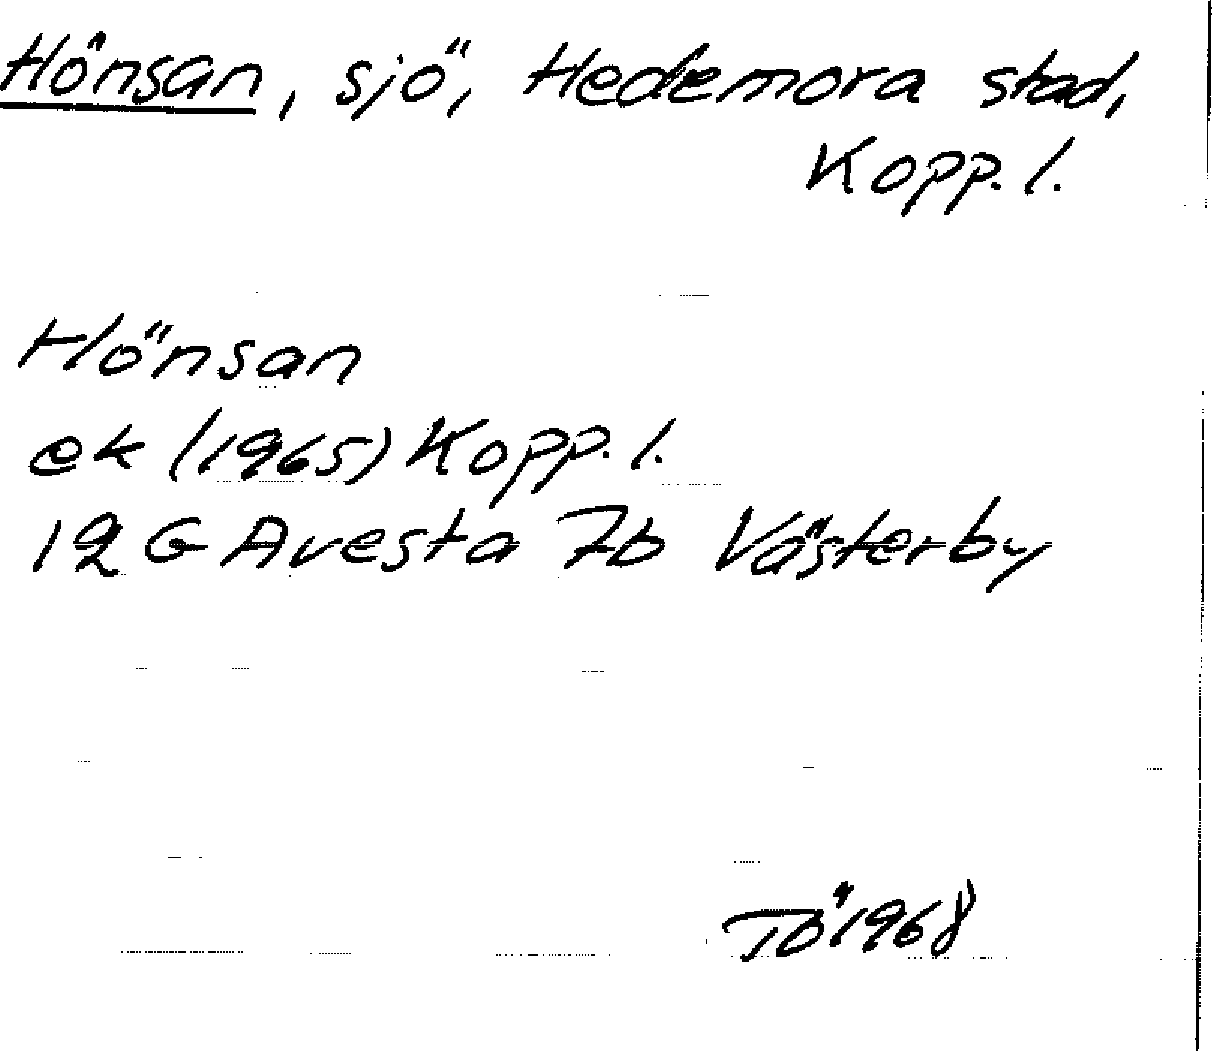 Hönsan, sjö, Hedemora stad,
Kopp. l.
Hönsan
ek (1965) Kopp. l.
12 G Avesta 7b Västerby
TÖ 1968